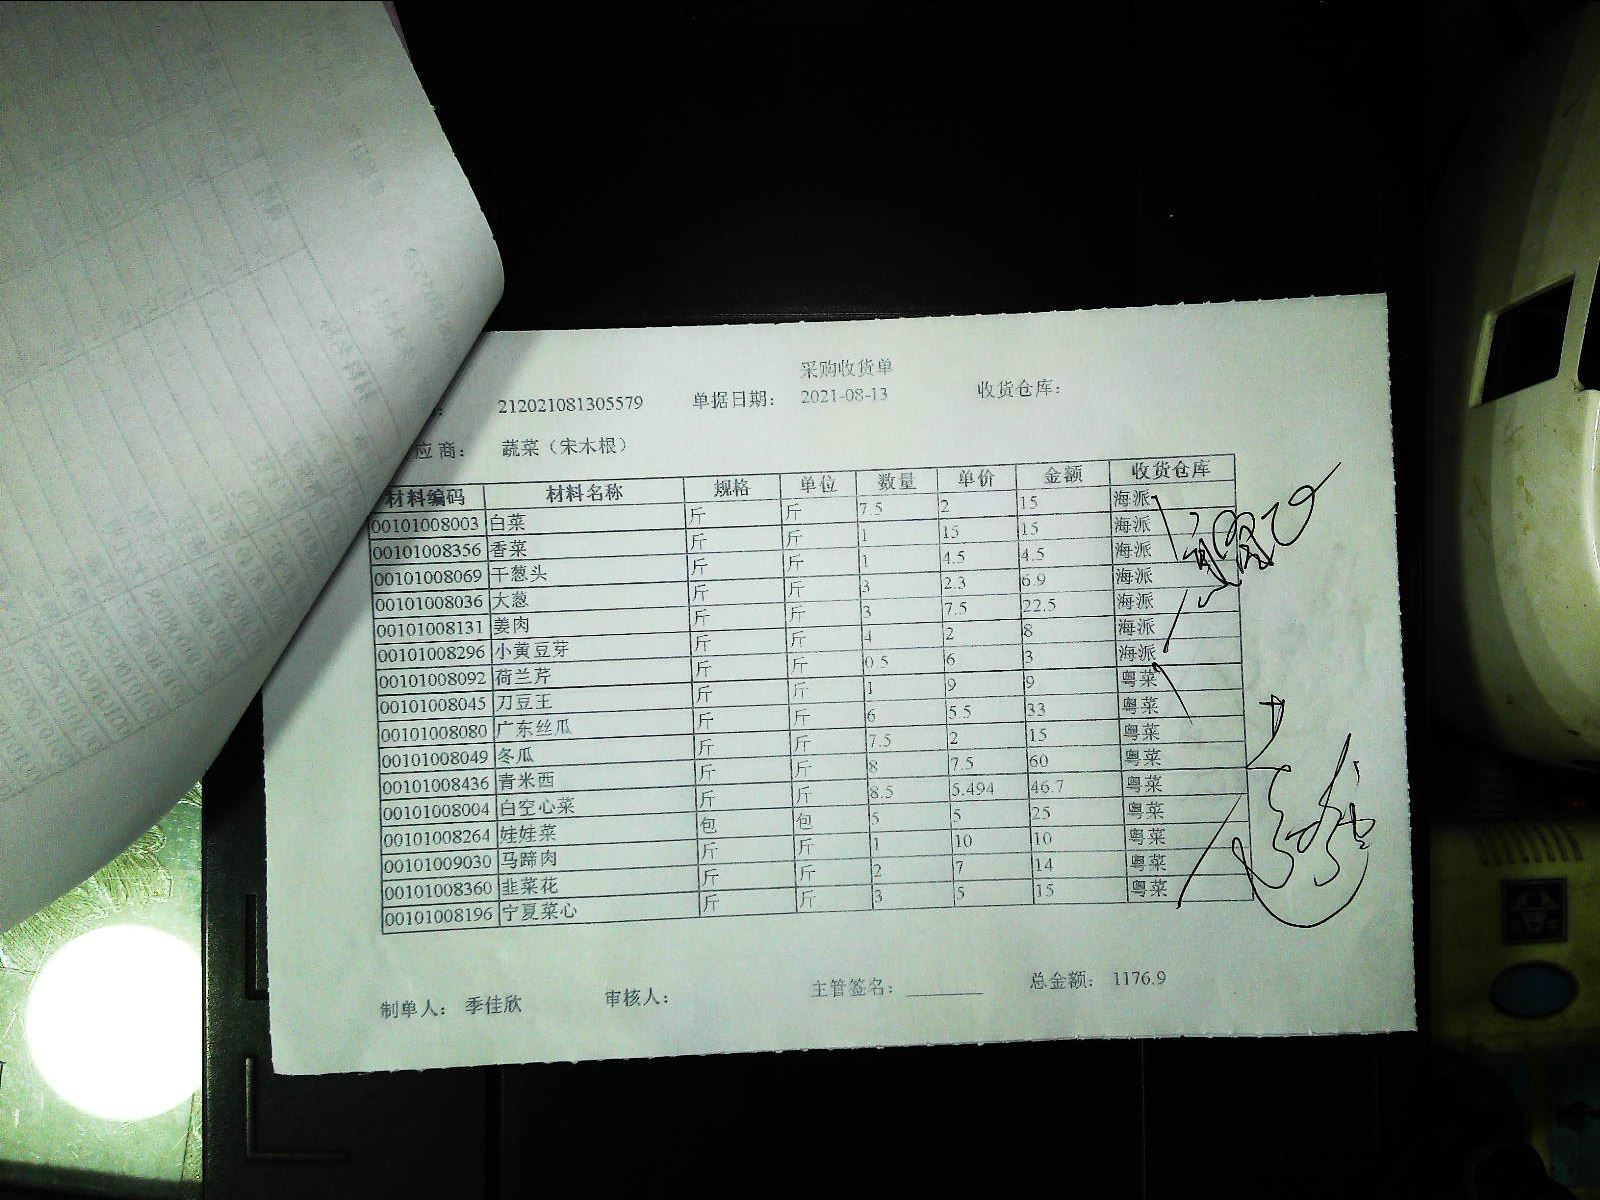 采购收货单
212021081305579 单据日期： 2021-08-13 收货仓库：
应商： 蔬菜（宋木根）
材料编码 材料名称 规格 单位 数量 单价 金额 收货仓库
00101008003 白菜 斤 斤 7.5 2 15 海派
00101008356 香菜 斤 斤 1 15 15 海派
00101008069 干葱头 斤 斤 1 4.5 4.5 海派
00101008036 大葱 斤 斤 3 2.3 6.9 海派
00101008131 姜肉 斤 斤 3 7.5 22.5 海派
00101008296 小黄豆芽 斤 斤 4 2 8 海派
00101008092 荷兰芹 斤 斤 0.5 6 3 海派
00101008045 刀豆王 斤 斤 1 9 9 粤菜
00101008080 广东丝瓜 斤 斤 6 5.5 33 粤菜
00101008049 冬瓜 斤 斤 7.5 2 15 粤菜
00101008436 青米西 斤 斤 8 7.5 60 粤菜
00101008004 白空心菜 斤 斤 8.5 5.494 46.7 粤菜
00101008264 娃娃菜 包 包 5 5 25 粤菜
00101009030 马蹄肉 斤 斤 1 10 10 粤菜
00101008360 韭菜花 斤 斤 2 7 14 粤菜
00101008196 宁夏菜心 斤 斤 3 5 15 粤菜
制单人： 季佳欣 审核人： 主管签名： ________ 总金额： 1176.9